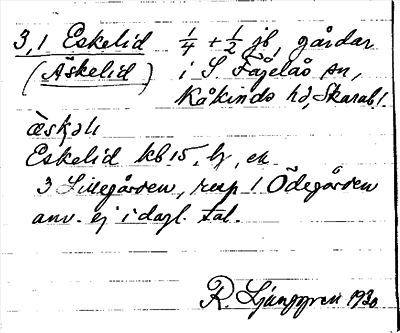 3,1 Eskelid 1/4 + 1/2 jb, gårdar
(Äskelid) i S. Fågelås sn,
Kåkinds hd, Skarab.l.
Eskelid kb 15, lj, ek.
3 Lillegården, resp 1 Ödegården
anv. ej i dagl. tal.
R. Ljunggren 1930